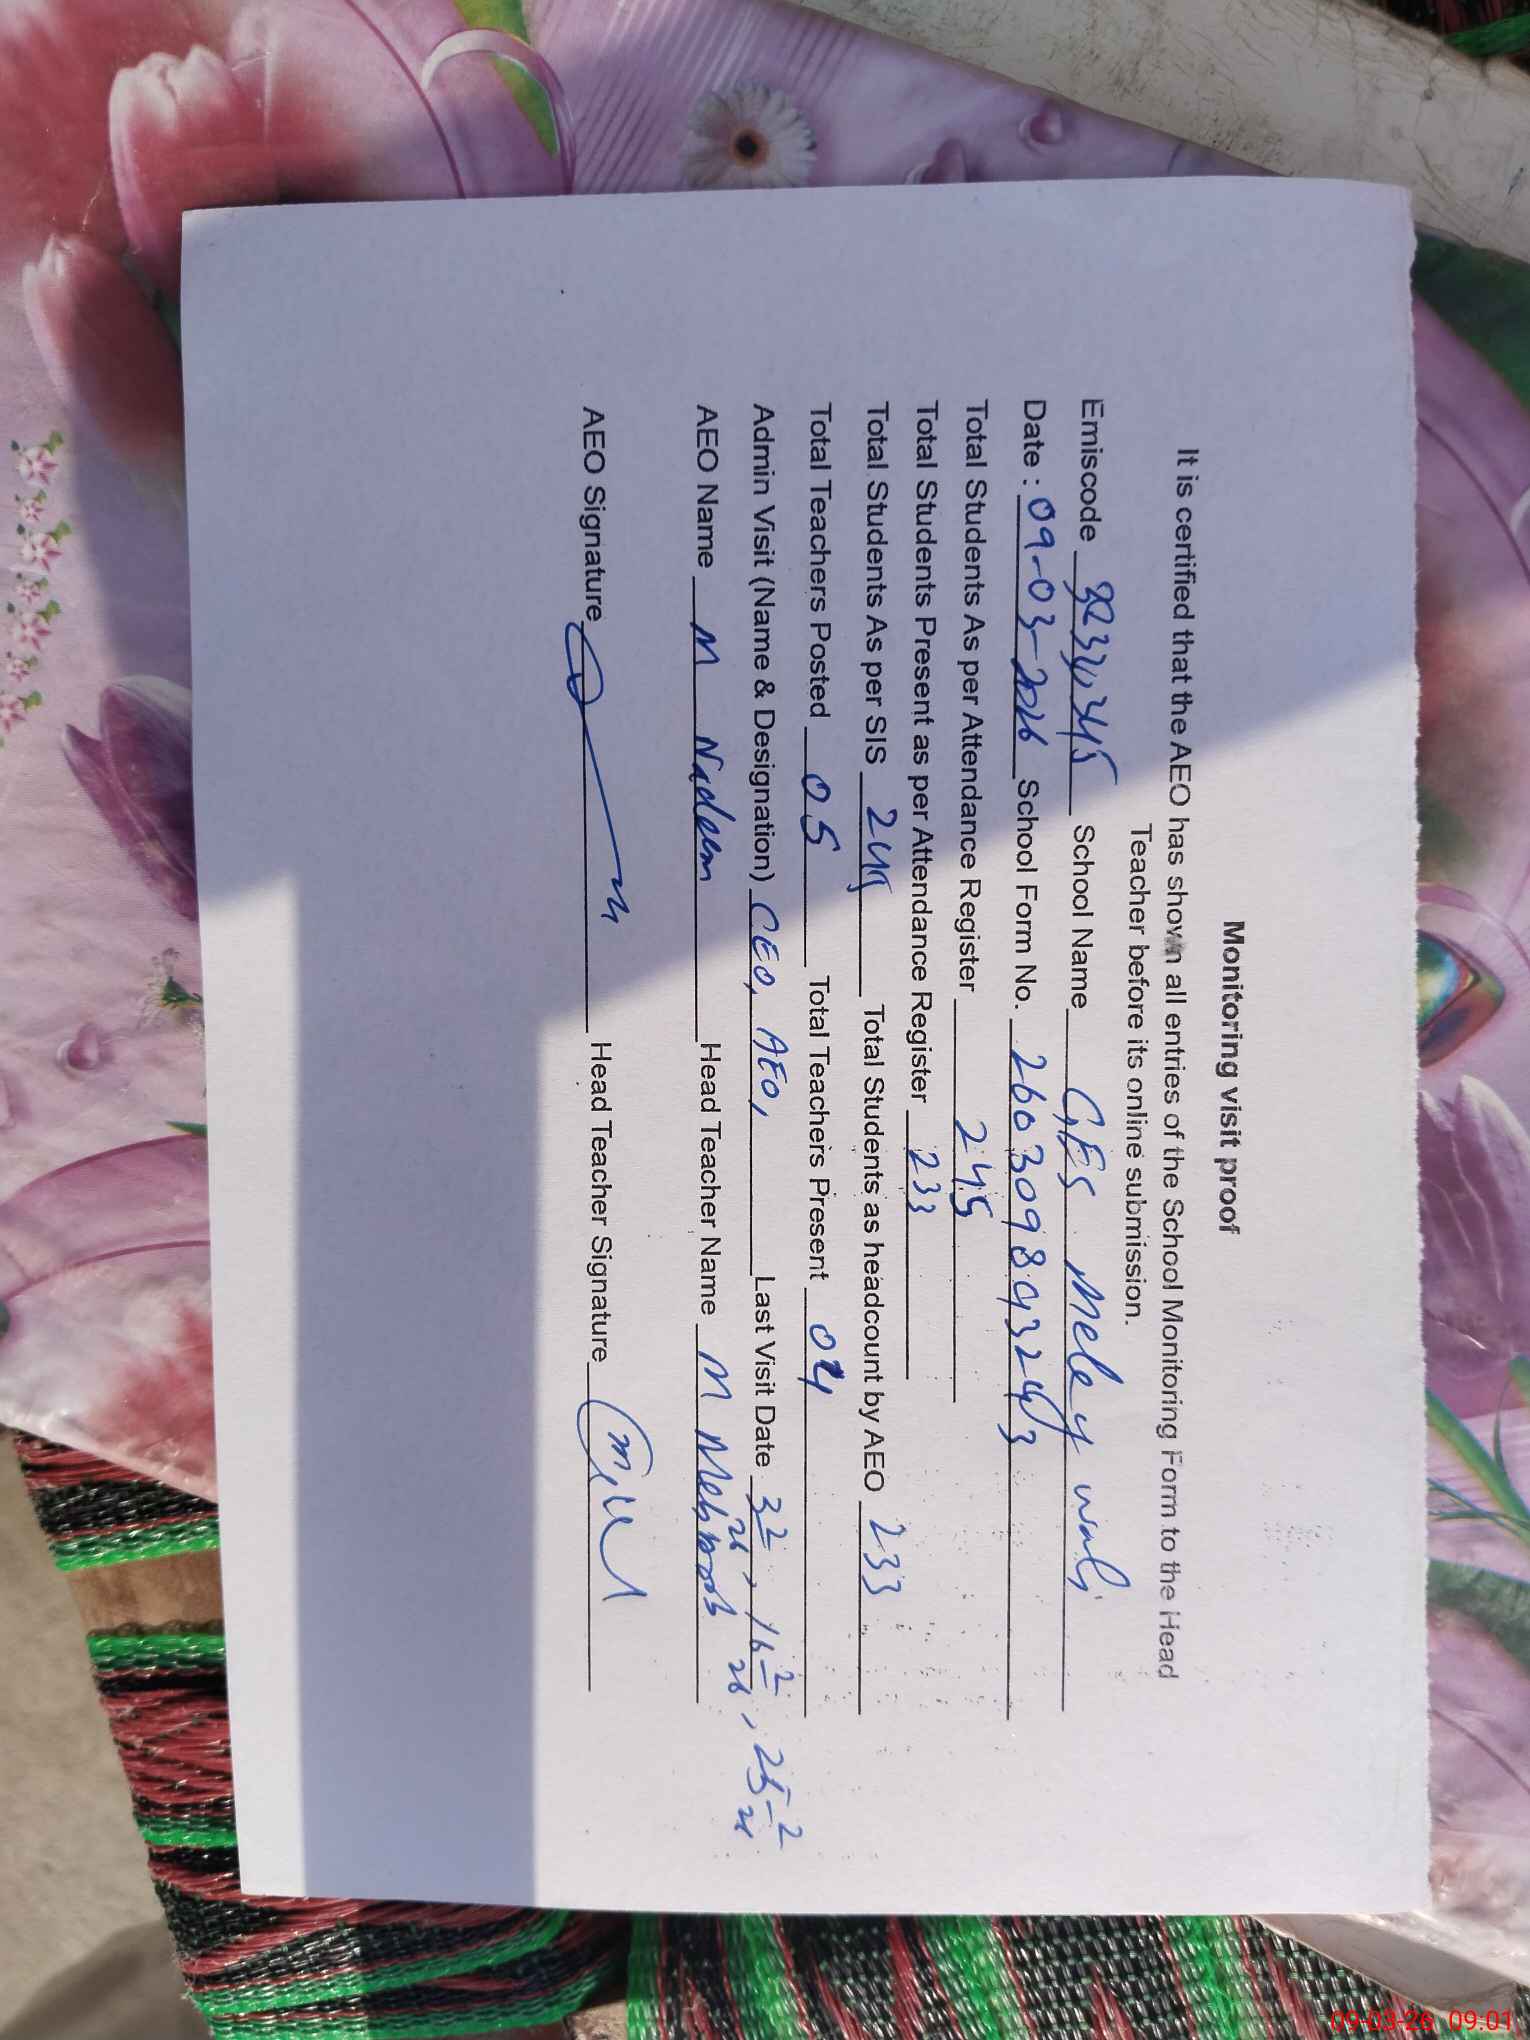 Monitoring visit proof
It is certified that the AEO has shown all entries of the School Monitoring Form to the Head
Teacher before its online submission.
Emiscode School Name GES Meley wali
Date : 09-03-2026 School Form No.
Total Students As per Attendance Register 245
Total Students Present as per Attendance Register 233
Total Students As per SIS 245 Total Students as headcount by AEO 233
Total Teachers Posted 05 Total Teachers Present 04
Admin Visit (Name & Designation) CEO, AEO, Last Visit Date 3-2-26, 16-2-26, 25-2-26
AEO Name M Nadeem Head Teacher Name M Mehboob
AEO Signature Head Teacher Signature
09-03-26 09:01